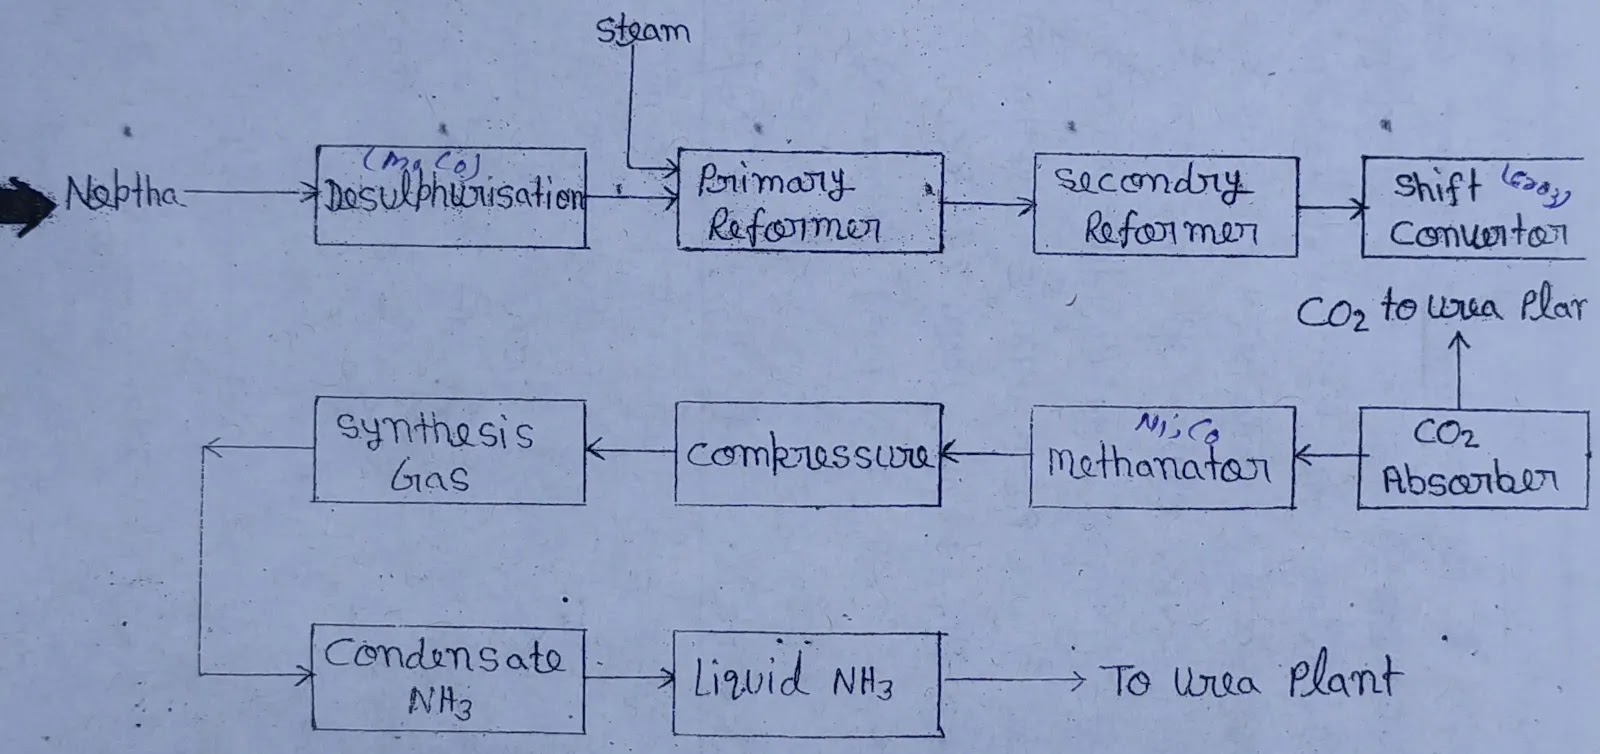 Steam
Neptha
(Mo, Co)
Desulphurisation
Primary
Reformer
Secondry
Reformer
Shift
Convertor
CO2 to Urea Plan
Synthesis
Gas
Compressure
Ni, Co
Methanator
CO2
Absorber
Condensate
NH3
Liquid NH3
To Urea Plant